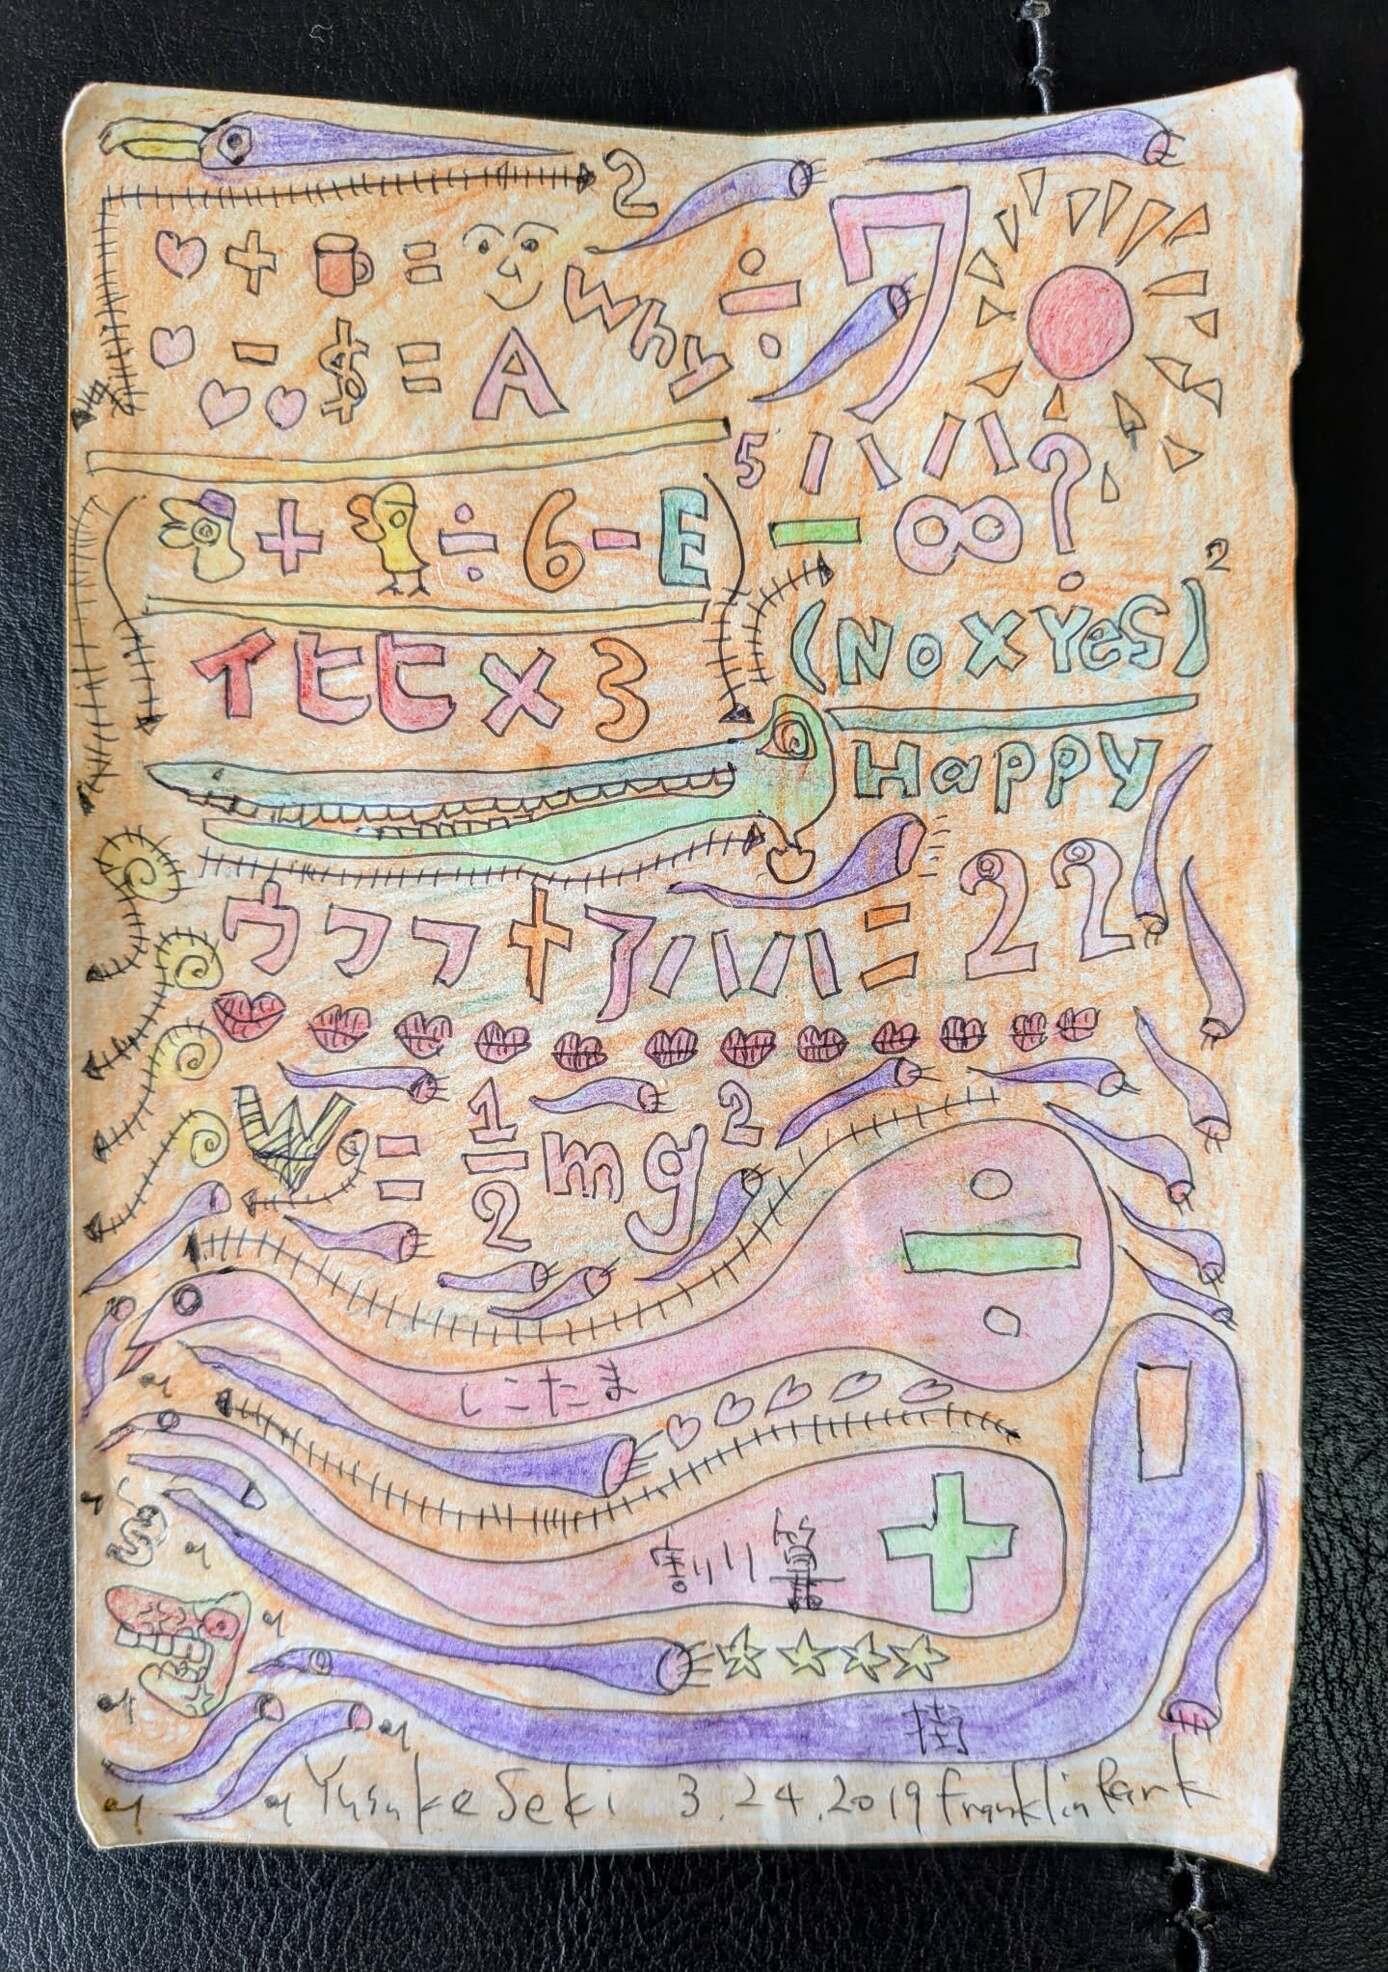 2
+ = Why ÷ ワ
- $ = A
5 ハハ
+ ÷ 6 - E - ∞ ?
イヒヒ × 3
(No×Yes)²
Happy
ウフフ + アハハ = 22
W = 1/2 mg²
÷
しこたま
-
割り算 +
掛
Yusuke Seki 3.24.2019 Franklin Park